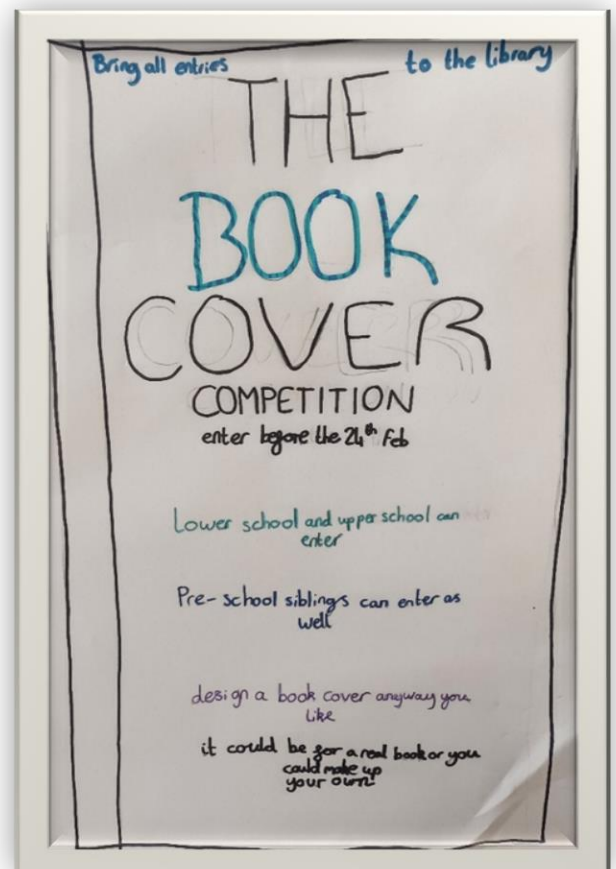 Bring all entries to the library
THE
BOOK
COVER
COMPETITION
enter before the 24th Feb
Lower school and upper school can
enter
Pre-school siblings can enter as
well
design a book cover anyway you
like
it could be for a real book or you
could make up
your own